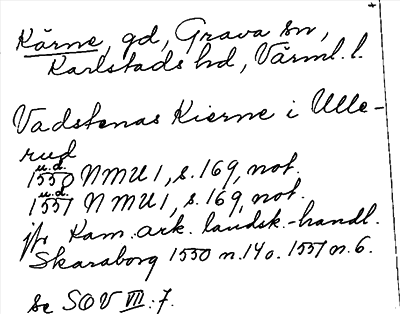 Kärne, gd, Grava sn,
Karlstads hd, Värml. l.
Vadstenas Kierne i Ulle-
rud
u.d.
1550 NMU 1, s. 169, not.
u.d.
1551 NMU 1, s. 169, not.
jfr Kam. ark. landsk.-handl.
Skaraborg 1550 n. 14 o. 1551 n. 6.
se SOV VII: 7.